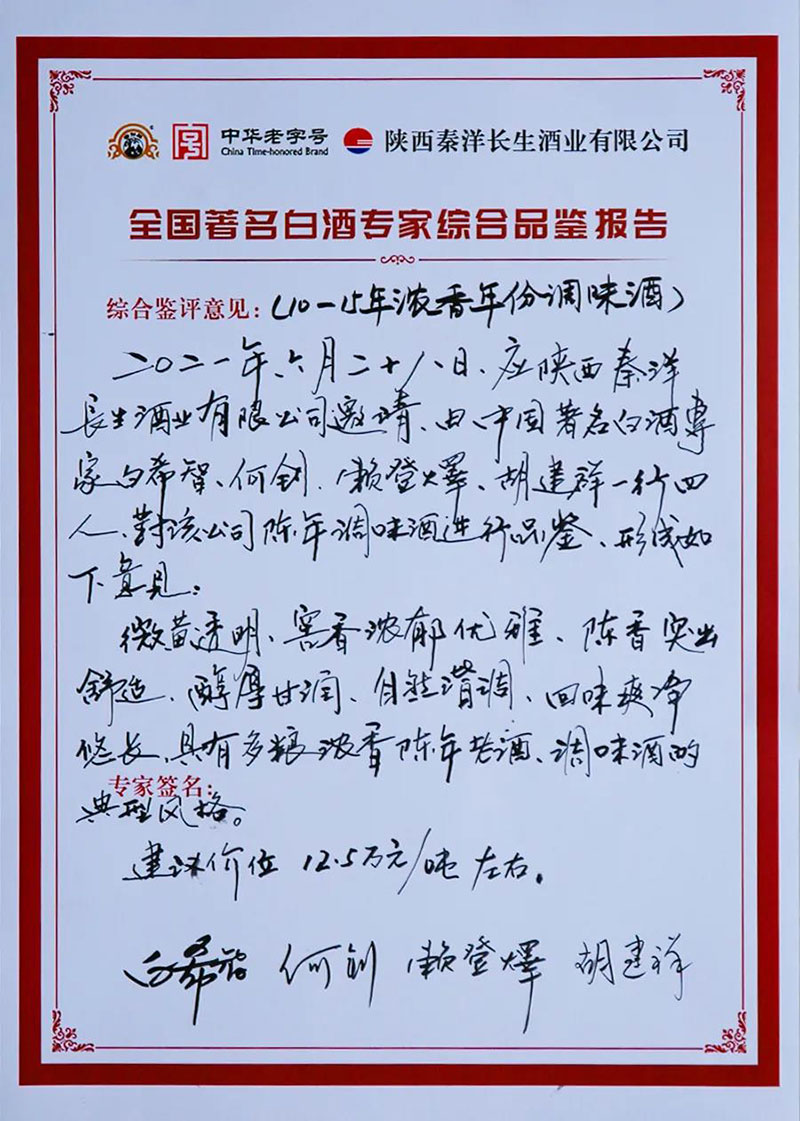 中华老字号
China Time-honored Brand
陕西秦洋长生酒业有限公司
全国著名白酒专家综合品鉴报告
综合鉴评意见：（10－15年浓香年份调味酒）
二〇二一年、六月二十八日、应陕西秦洋
長生酒业有限公司邀请、由、中国著名白酒專
家白希智、何剑、赖登燡、胡建祥一行四
人、對该公司陈年调味酒进行品鉴、形成如
下意见：
微黄透明、窖香浓郁优雅、陈香突出
舒适、醇厚甘润、自然谐调、回味爽净
悠长、具有多粮浓香陈年老酒、调味酒的
专家签名：
典型风格。
建议价位 12.5万元/吨左右。
白希智 何剑 赖登燡 胡建祥